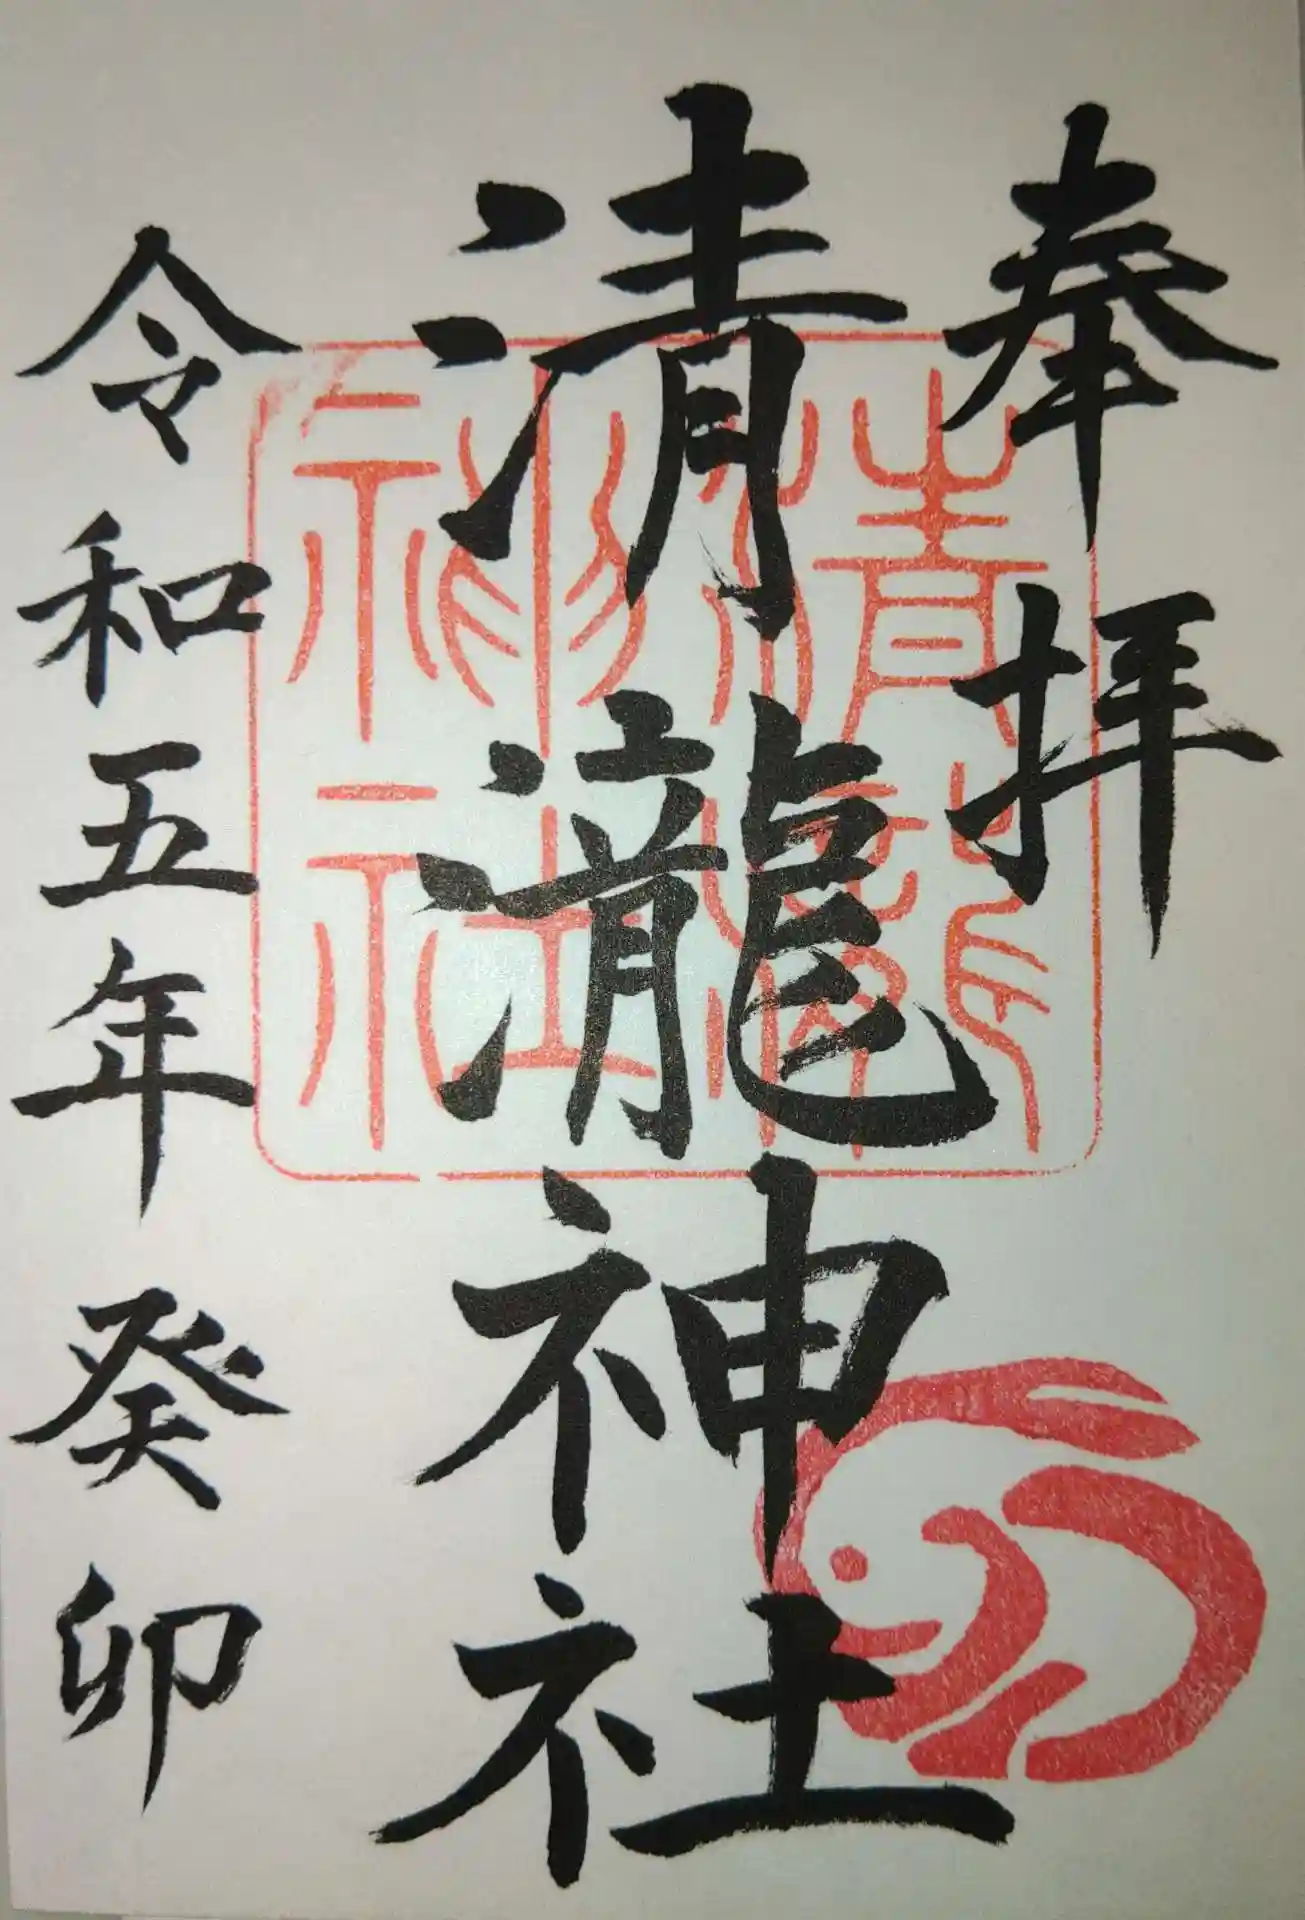 奉拝
清瀧神社
令和五年 癸卯
清瀧神社